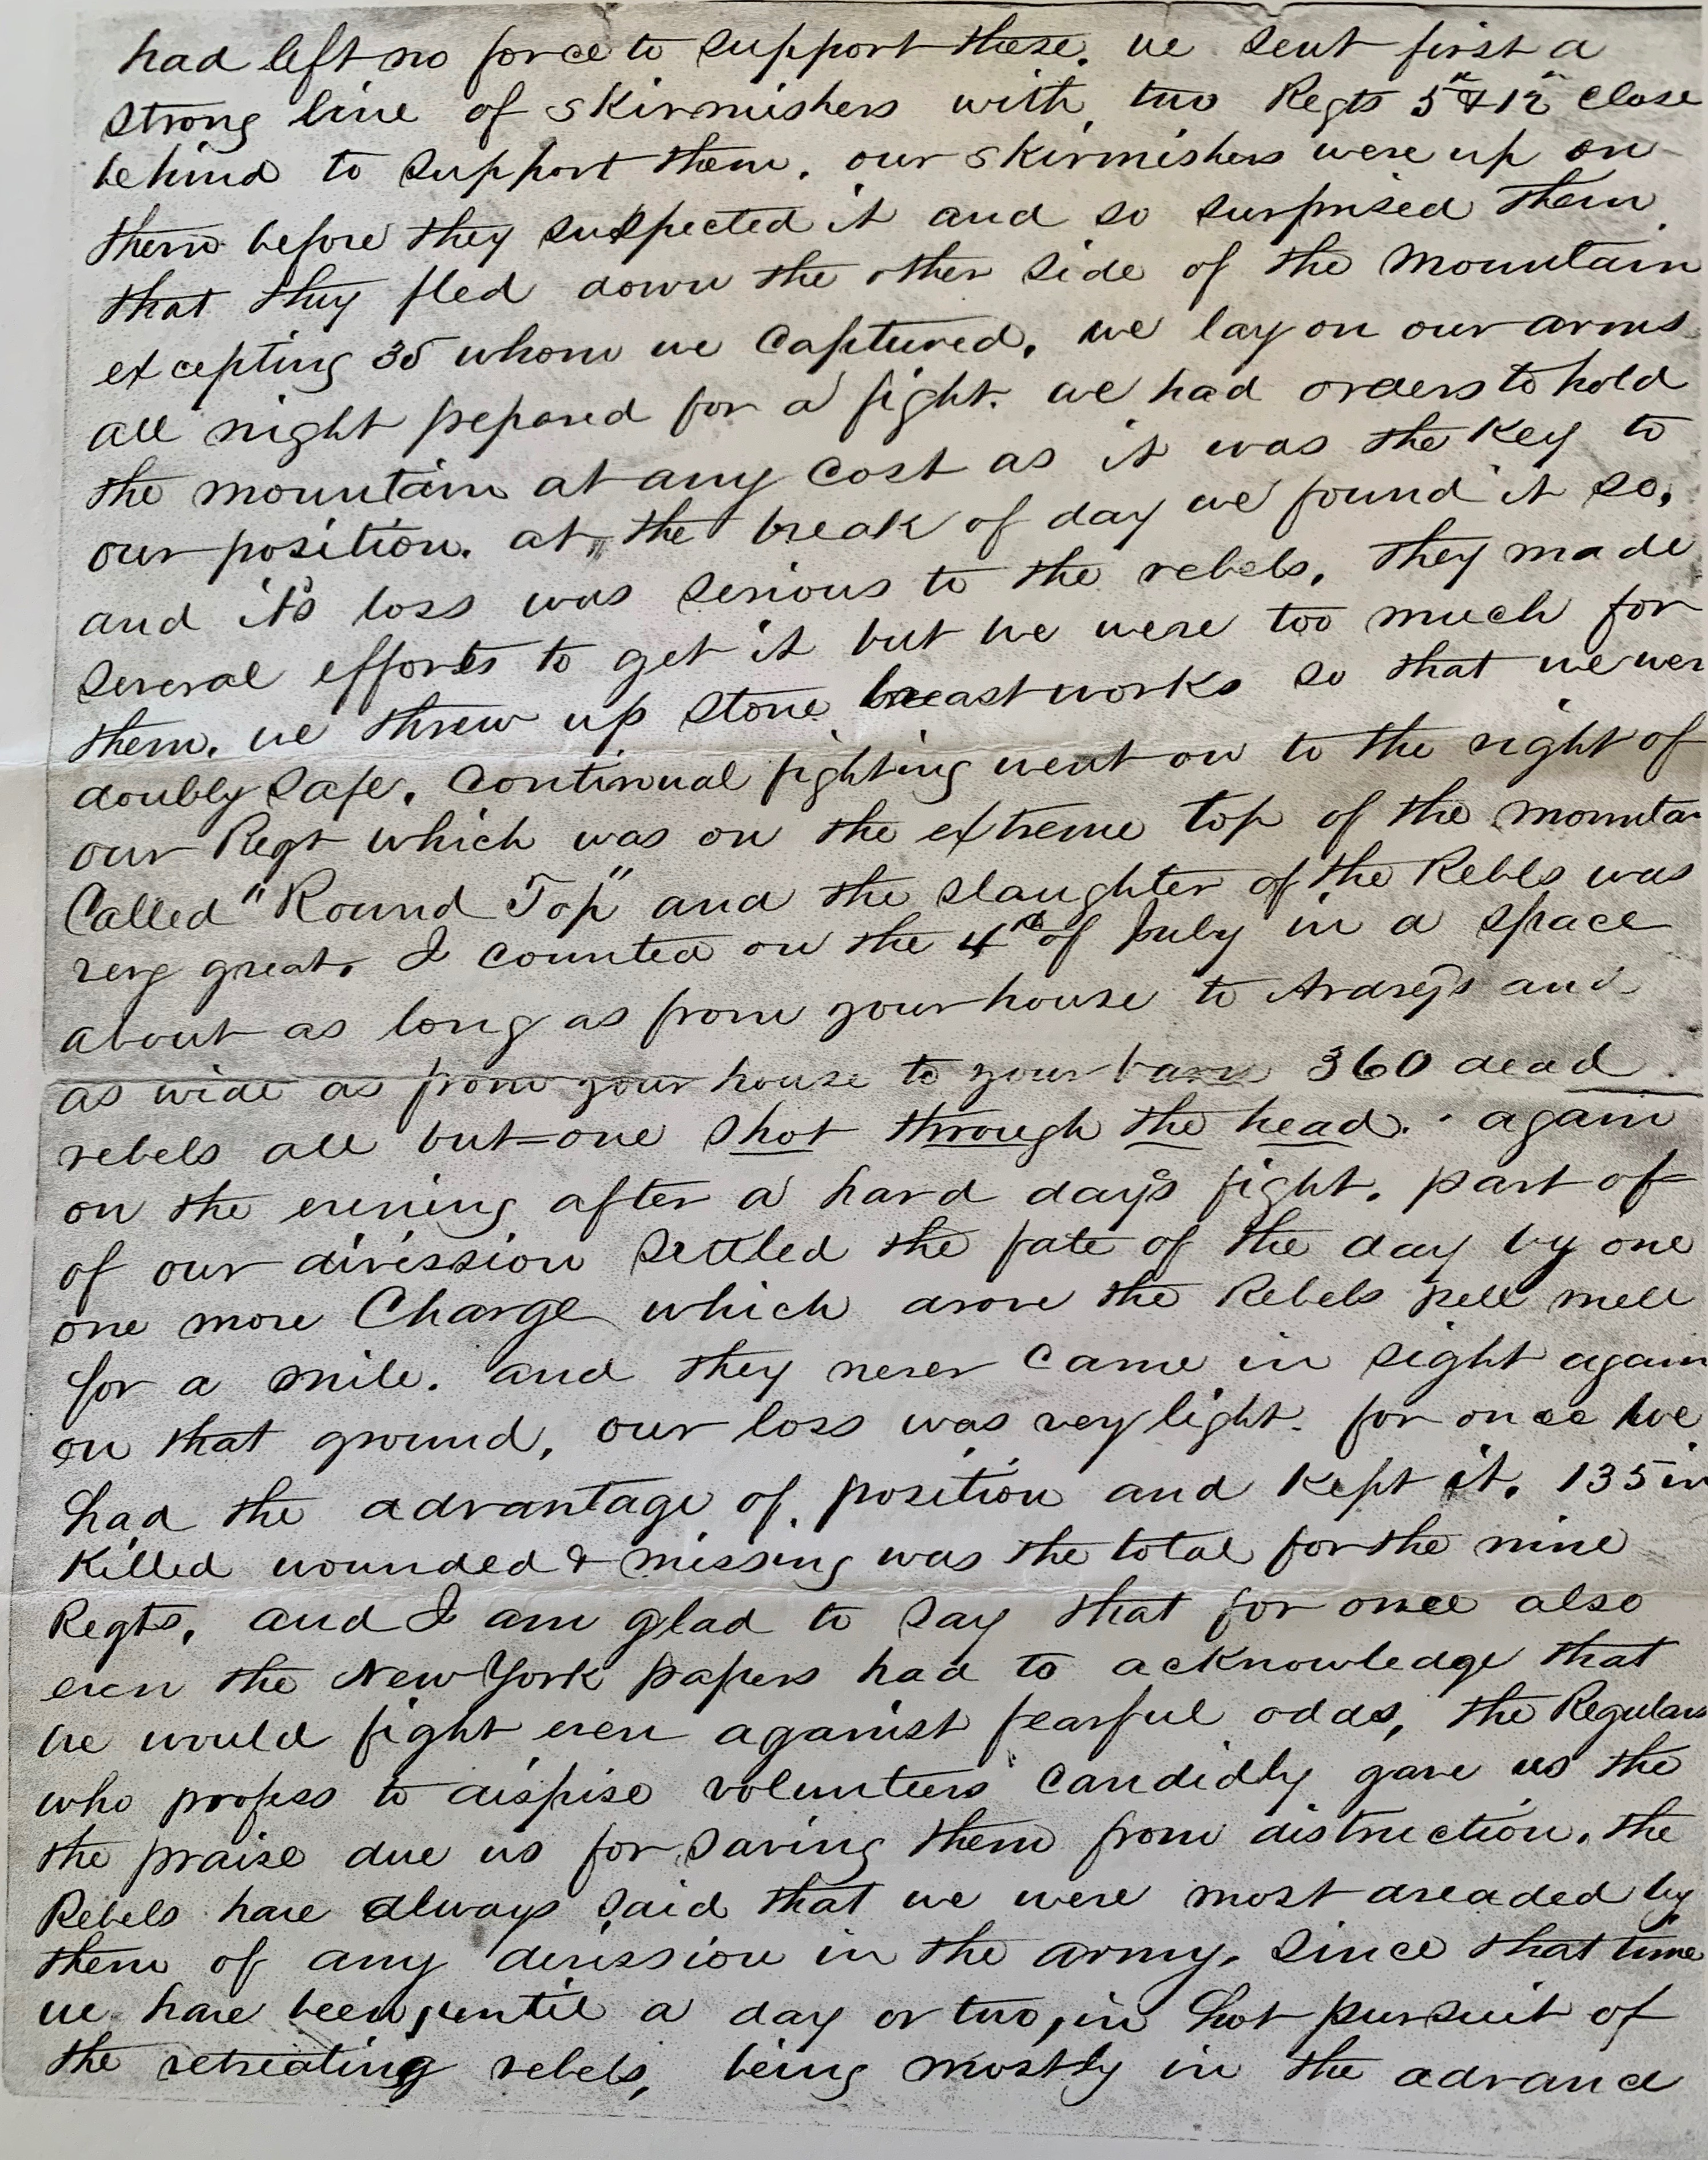 had left no force to support these. we sent first a
strong line of skirmishers with two Regts 5th & 12th close
behind to support them. our skirmishers were up on
them before they suspected it and so surprised them
that they fled down the other side of the mountain
excepting 35 whom we captured. we lay on our arms
all night prepared for a fight. we had orders to hold
the mountain at any cost as it was the key to
our position. at the break of day we found it so,
and it's loss was serious to the rebels. they made
several efforts to get it but we were too much for
them. we threw up stone breastworks so that we wer
doubly safe. continual fighting went on to the right of
our Regt which was on the extreme top of the mounta
Called "Round Top" and the slaughter of the Rebels was
very great. I counted on the 4th of July in a space
about as long as from your house to and
as wide as from your house to your barn 360 dead
rebels all but one shot through the head. again
on the evening after a hard day's fight. part of
of our divission settled the fate of the day by one
one more Charge which drove the Rebels pell mell
for a mile. and they never came in sight again
on that ground, our loss was very light. for once we
had the advantage of position and kept it. 135 in
killed wounded & missing was the total for the nine
Regts. and I am glad to say that for once also
even the New York papers had to acknowledge that
we would fight even against fearful odds, the Regulars
who profess to dispise volunteers candidly gave us the
the praise due us for saving them from distruction. the
Rebels have always said that we were most dreaded by
them of any divission in the army. Since that time
we have been, until a day or two, in hot pursuit of
the retreating rebels, being mostly in the advance